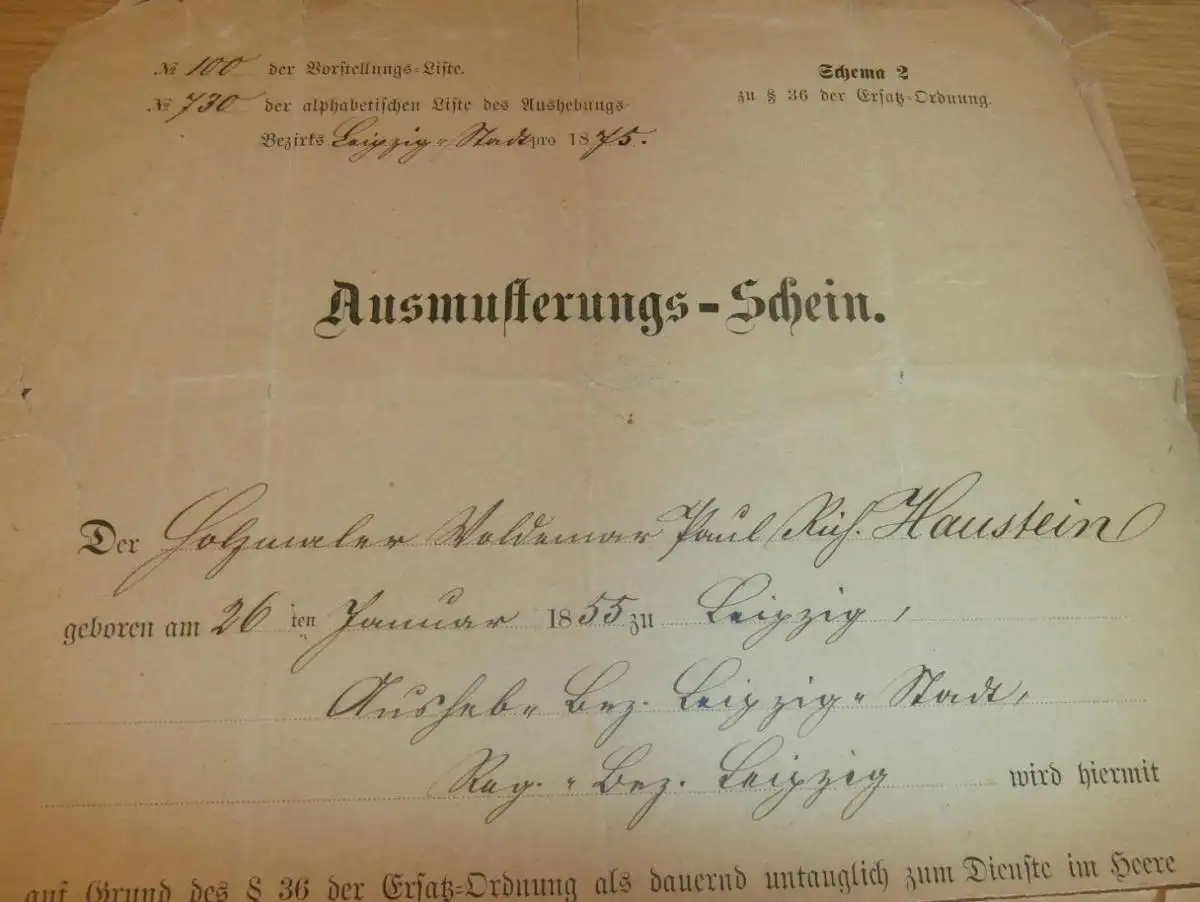 № 100 der Vorstellungs-Liste.
№ 730 der alphabetischen Liste des Aushebungs-
Bezirks Leipzig-Stadt pro 1875.
Schema 2
zu § 36 der Ersatz-Ordnung.
Ausmusterungs-Schein.
Der Holzmaler Woldemar Paul Rich. Haustein
geboren am 26 ten Januar 1855 zu Leipzig,
Ausheb-Bez. Leipzig-Stadt,
Reg.-Bez. Leipzig wird hiermit
auf Grund des § 36 der Ersatz-Ordnung als dauernd untauglich zum Dienste im Heere